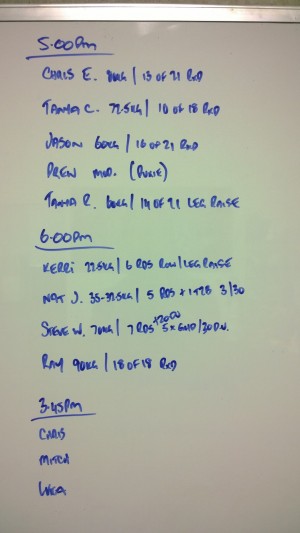 5.00pm
CHRIS E. 80KG | 13 OF 21 RXD
TANIA C. 22.5KG | 10 OF 18 RXD
JASON 60KG | 16 OF 21 RXD
DREW
TANIA R. 60KG | 14 OF 21 LEG RAISE
6.00pm
KERRI 22.5KG | 6 RDS ROW/LEG RAISE
NAT J. 35-37.5KG | 5 RDS + 3/30
STEVE W. 70KG | 7 RDS
RAY 90KG | 18 OF 18 RXD
3.45pm
CHRIS
MITCH